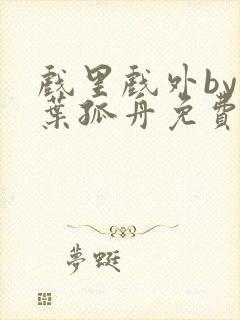 戲里戲外by
葉孤舟免費
夢蜓